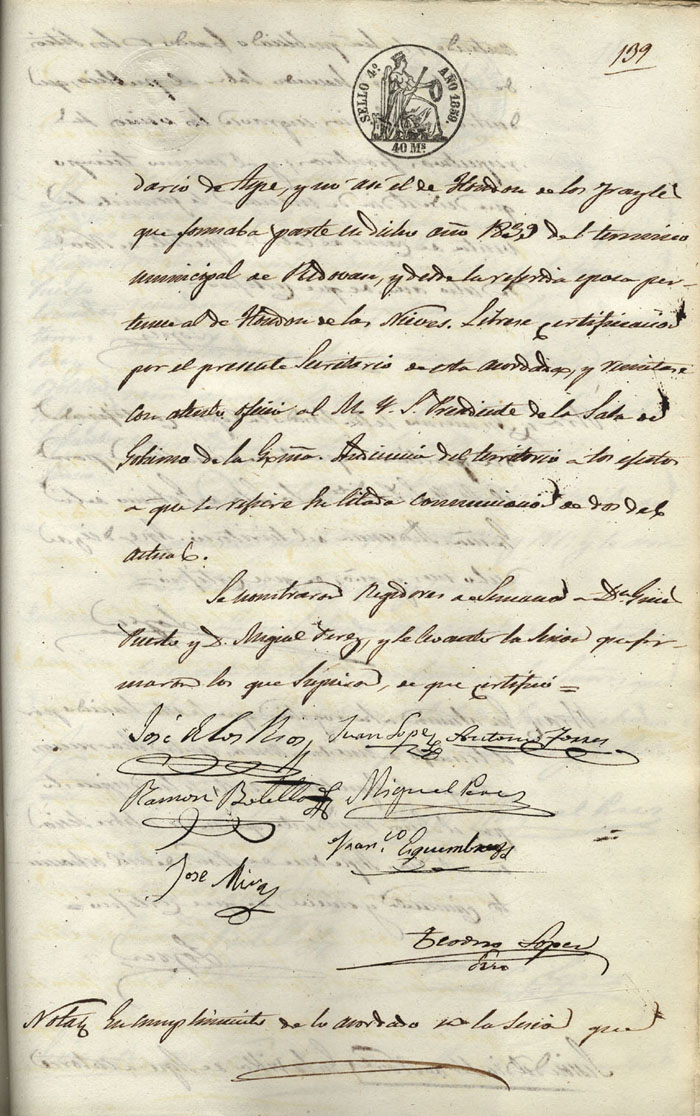 139
SELLO 4º AÑO 1859.
40 Ms
dario de Aspe, y no asi el de Hondon de los Frayles
que formaba parte en dicho año 1839 del termino
municipal de Redovan, y desde la referida epoca per-
tenece al de Hondon de las Nieves. Librese certificacion
por el presente Secretario de esta acordada, y remitase
con atento oficio al M. Y. S. Presidente de la Sala de
Gobierno de la Exma. Audiencia del territorio a los efectos
a que se refiere su citada comunicacion de dos del
actual.
Se nombraron Regidores de Semana a Dn
Puerto y D. Miguel Perez, y se levantó la sesion que fir-
maron los que supieron, de que certifico =
José de los Rios Juan Lopez Antonio Torres
Ramon Botella Miguel Perez
Franco
Jose Mira
Teodoro Lopez
Srio
Nota En cumplimiento de lo acordado en la sesion que